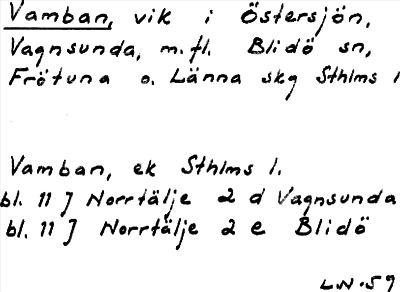 Vamban, vik i Östersjön,
Vagnsunda, m.fl. Blidö sn,
Frötuna o. Länna skg Sthlms l
Vamban, ek Sthlms l.
bl. 11 J Norrtälje 2 d Vagnsunda
bl. 11 J Norrtälje 2 e Blidö
LW.59